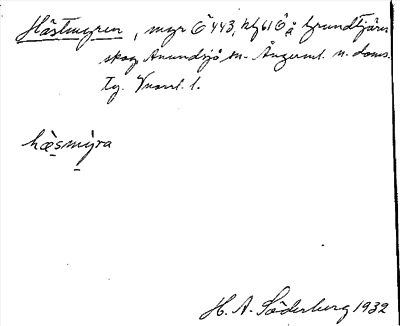 Hästmyren, myr Ö 443, kbl 61 Ö å Grundtjärn
skog Anundsjö sn. Ångerml. n. doms.
tg. Vnorrl. l.
hæ̀smỳra
H. A. Söderberg 1932